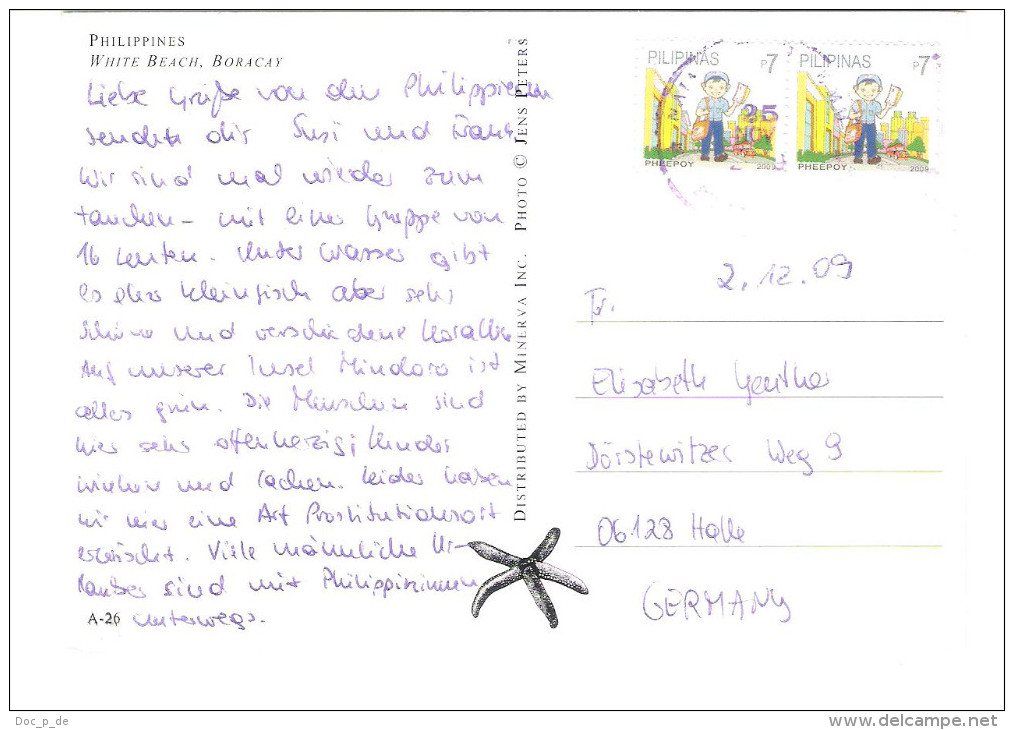 PHILIPPINES
WHITE BEACH, BORACAY
Liebe Grüße von den Philippienen
sendete dir Susi und Frank
Wir sind mal wieder zum
tauchen – mit einer Gruppe von
16 Leuten. Unter Wasser gibt
es eher Kleinfisch aber sehr
schöne und verschiedene Korallen
Auf unserer Insel Mindoro ist
alles grün. Die Menschen sind
hier sehr offenherzig; Kinder
winken und lachen. Leider haben
wir hier eine Art Prostitutionsort
erwischt. Viele männliche Ur-
lauber sind mit Philippinnen
unterwegs.
A-26
DISTRIBUTED BY MINERVA INC. PHOTO © JENS PETERS
PILIPINAS
7
P
PHEEPOY
2009
PILIPINAS
P7
PHEEPOY
2009
25
2.12.09
Fr.
Elisabeth
Dörstewitzer Weg 9
06128 Halle
GERMANY
Doc_p_de
delcampe.net